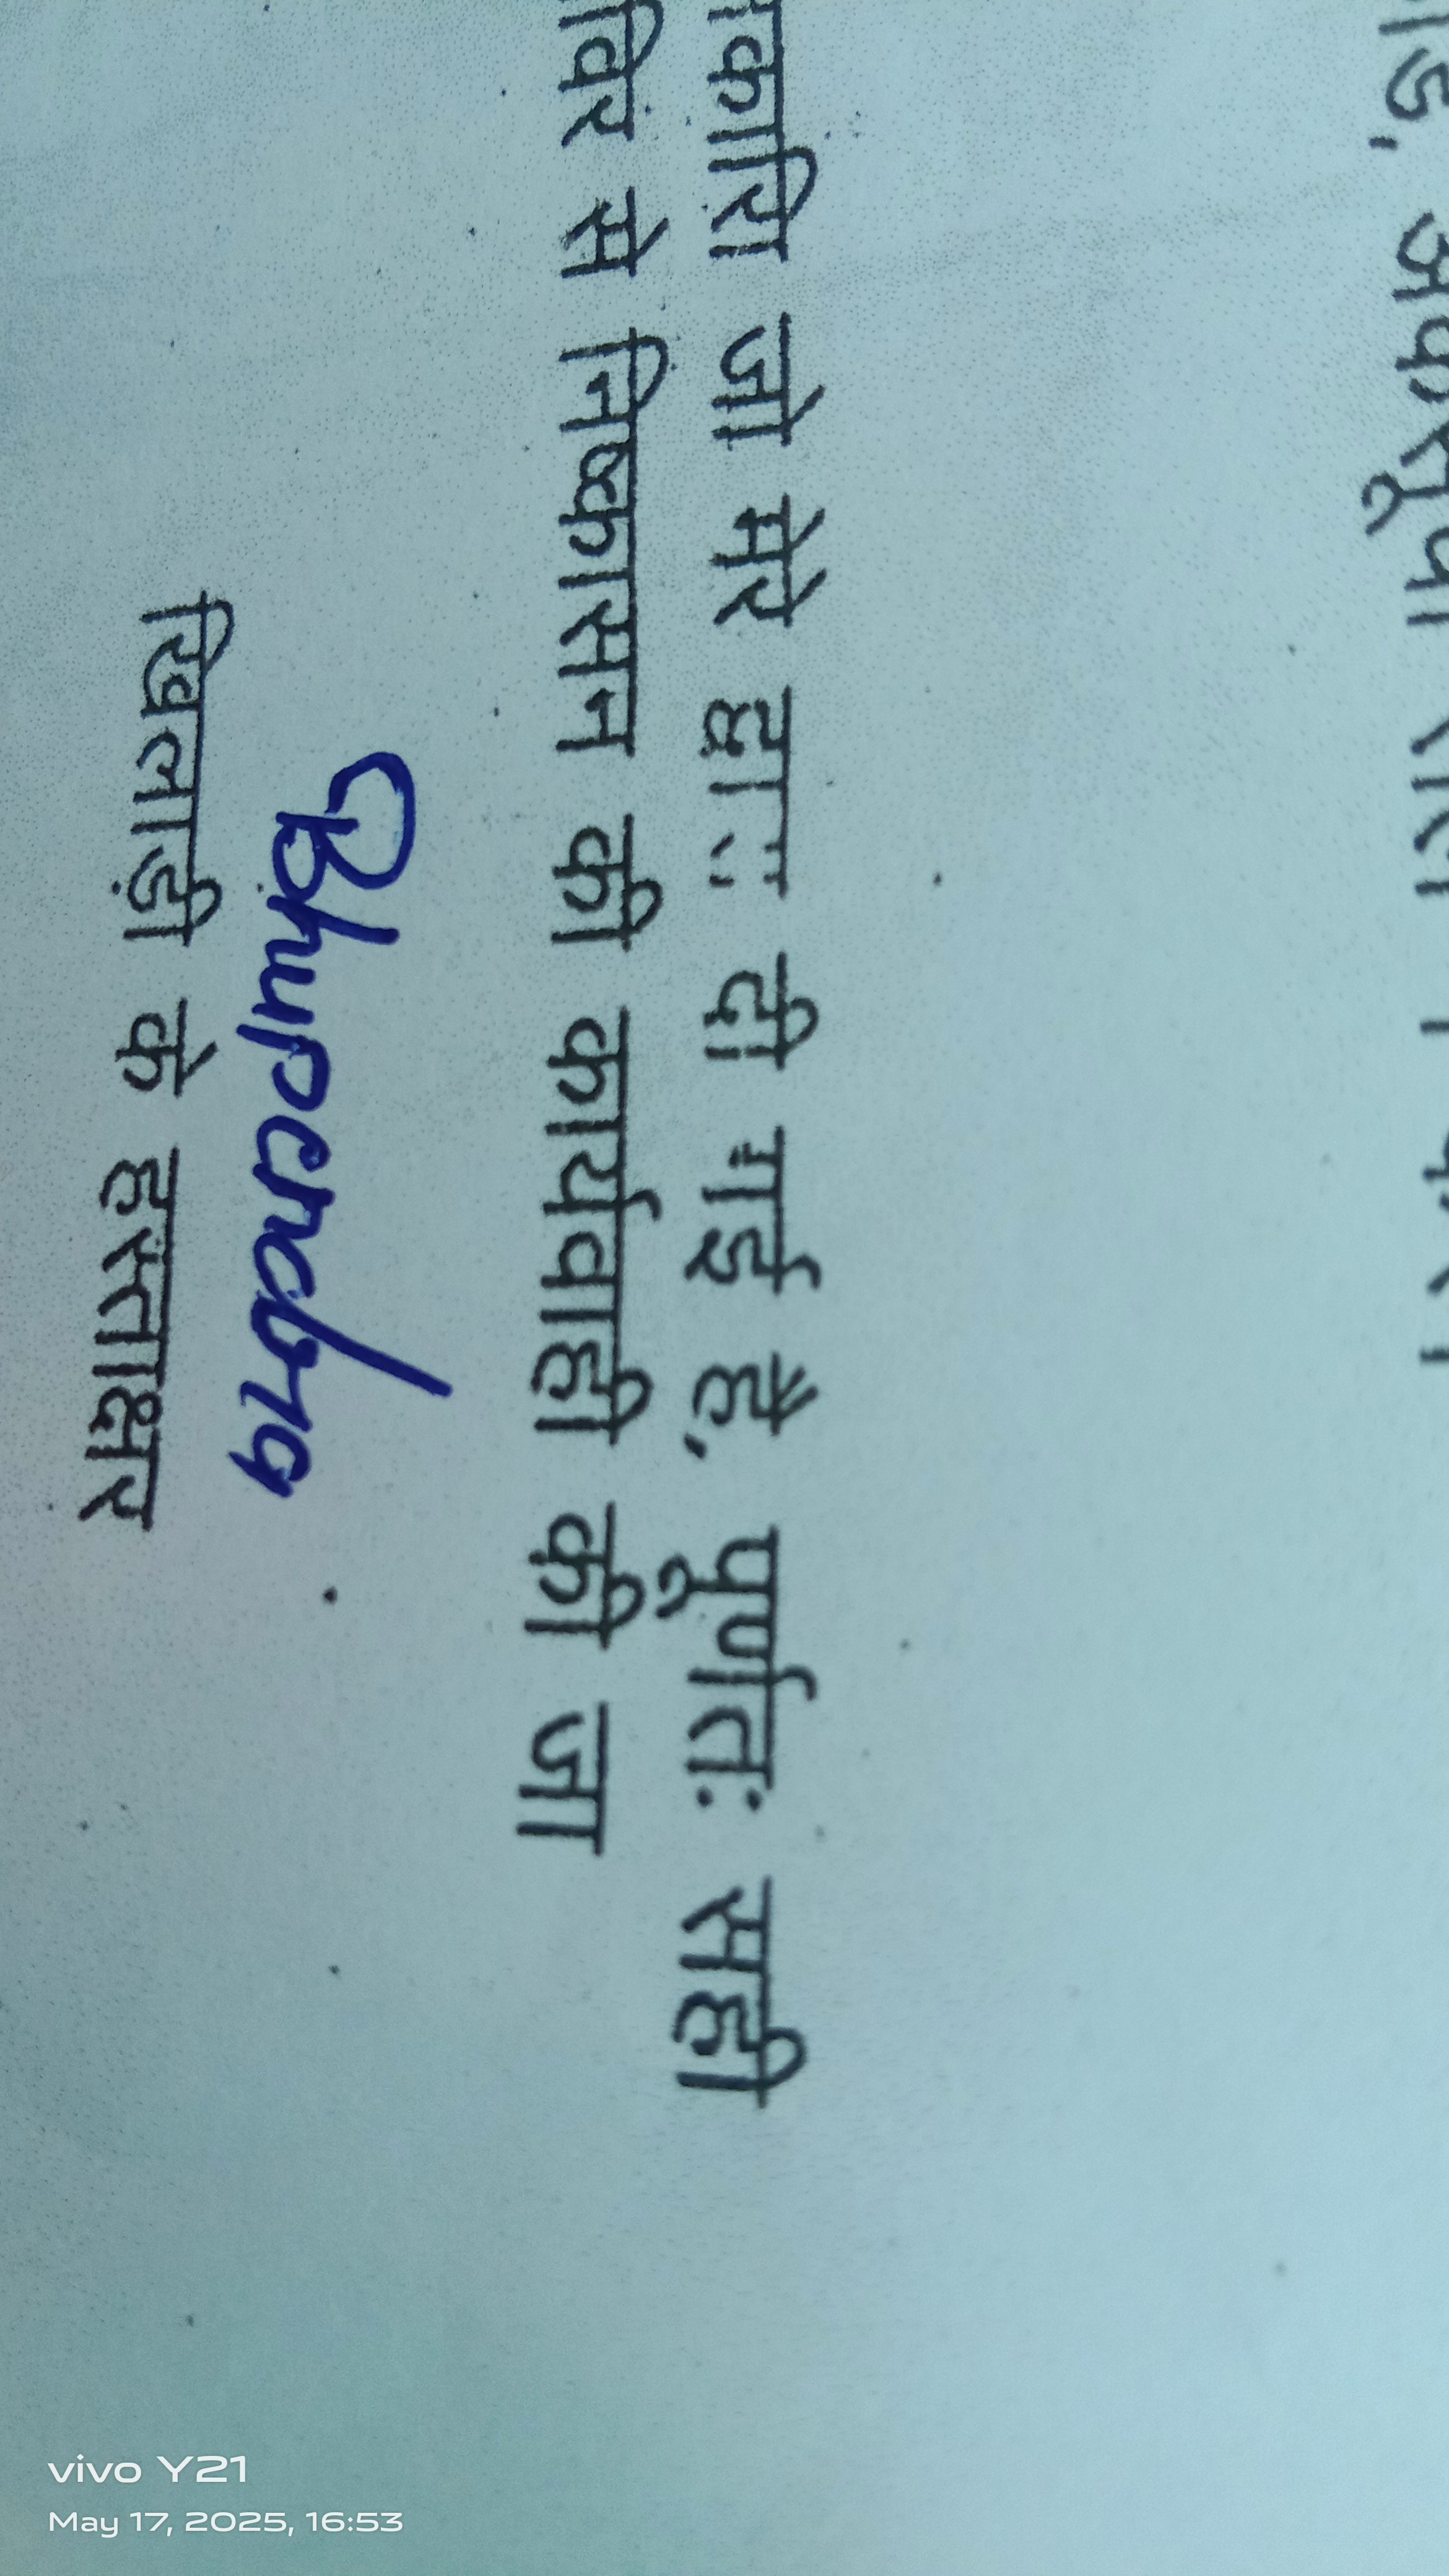 अंकसूची
जो मेरे द्वारा दी गई है, पूर्णतः सही
से निष्कासन की कार्यवाही की जा
Bhupendra
खिलाड़ी के हस्ताक्षर
vivo Y21
May 17, 2025, 16:53